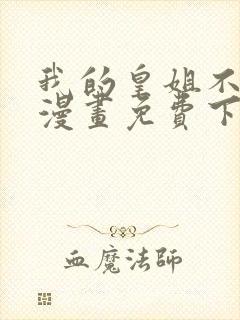 我的皇姐不
漫畫免費下
血魔法師